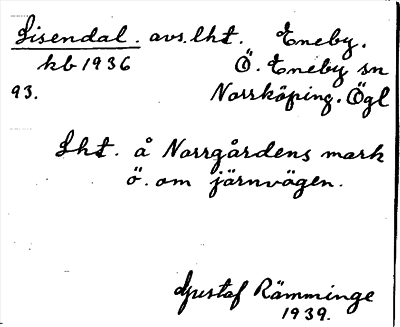 Lisendal. avs. lht. Eneby.
kb 1936 Ö. Eneby sn
93. Norrköping. Ögl
Lht. å Norrgårdens mark
ö. om järnvägen.
Gustaf Rämminge
1939.